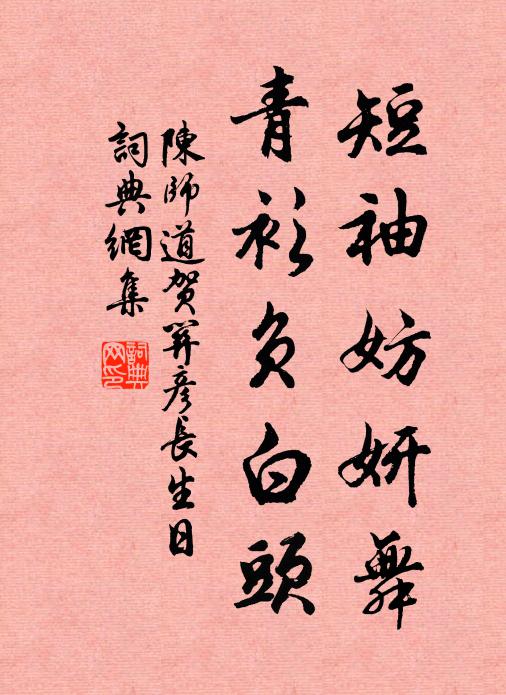 短袖妨妍舞
青衫負白頭
陳師道賀關彥長生日
詞典網集
詞典網印